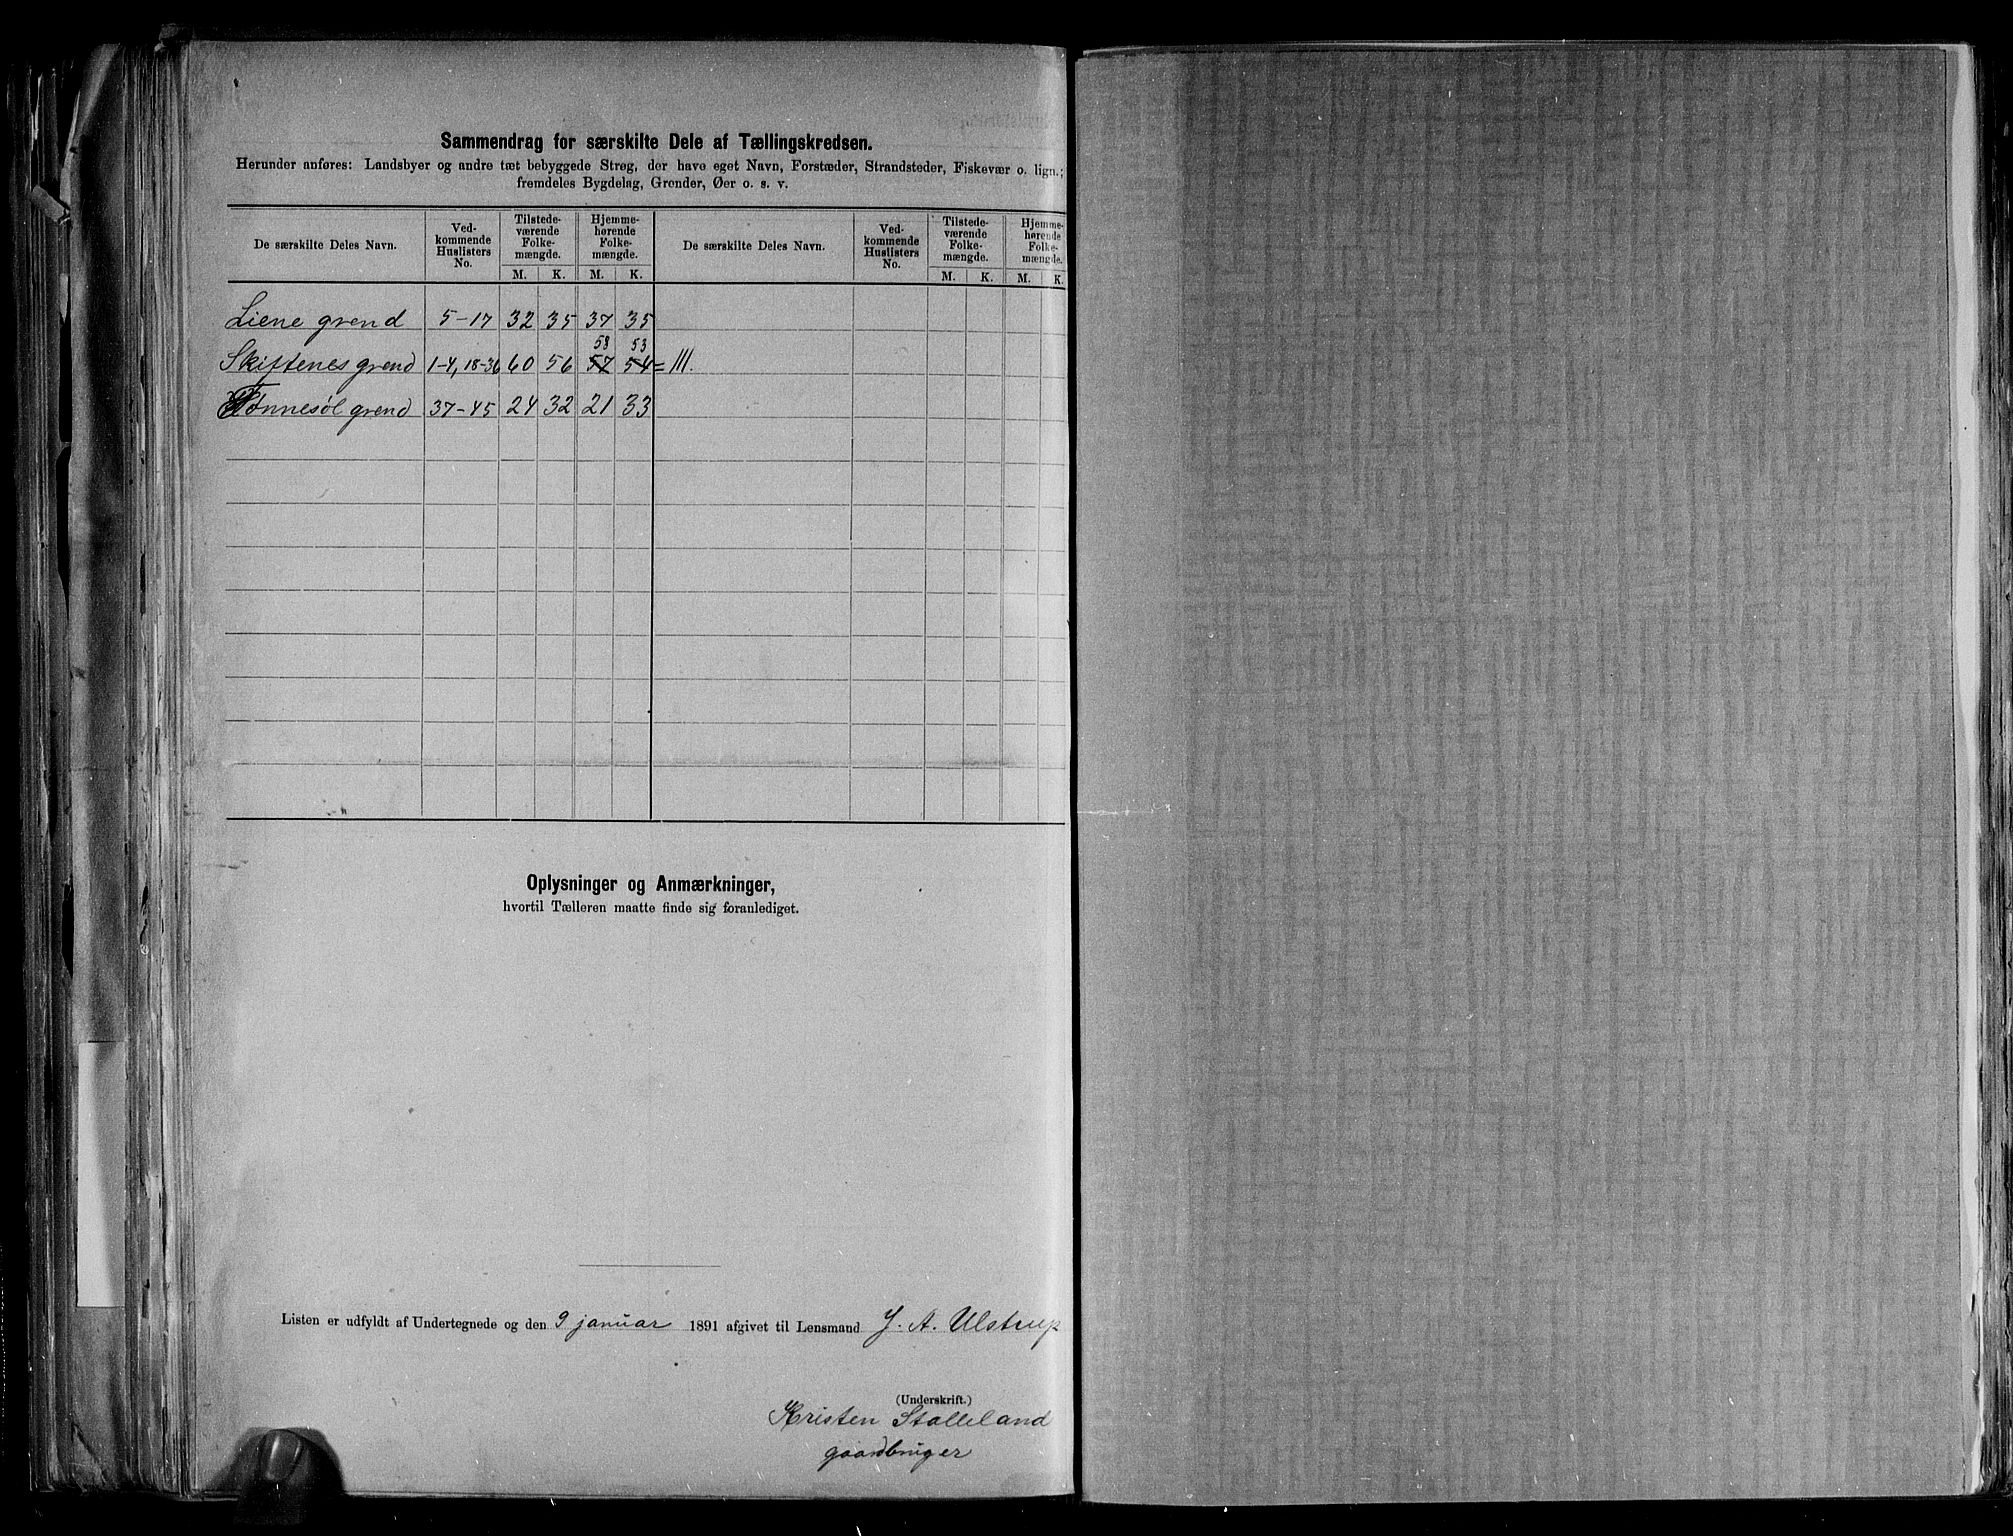 Sammendrag for særskilte Dele af Tællingskredsen.
Herunder anføres: Landsbyer og andre tæt bebyggede Strøg, der have eget Navn, Forstæder, Strandsteder, Fiskevær o. lign.;
fremdeles Bygdelag, Grender, Øer o. s. v.
De særskilte Deles Navn. Ved-kommende Huslisters No. Tilstede-værende Folke-mængde. Hjemme-hørende Folke-mængde. De særskilte Deles Navn. Ved-kommende Huslisters No. Tilstede-værende Folke-mængde. Hjemme-hørende Folke-mængde.
M. K. M. K. M. K. M. K.
Liene grend 5-17 32 35 37 35
58 53
Skiftenes grend 1-4, 18-36 60 56 57 54 = 111.
Tønnesøl grend 37-45 24 32 21 33
Oplysninger og Anmærkninger,
hvortil Tælleren maatte finde sig foranlediget.
Listen er udfyldt af Undertegnede og den 9 januar 1891 afgivet til Lensmand J. A. Ulstrup
(Underskrift.)
Kristen Stalleland
gaardbruger